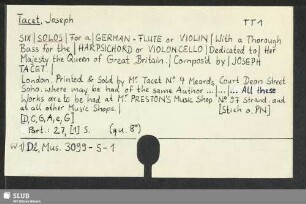 Tacet, Joseph
TT1
SIX | SOLOS | For a | GERMAN-FLUTE or VIOLIN | With a Thorough
Bass for the | HARPSICHORD or VIOLONCELLO | Dedicated to | Her
Majesty the Queen of Great Britain. | Compos'd by | JOSEPH
TACET. |
London. Printed & Sold by Mr. Tacet No. 9 Meards Court Dean Street
Soho. where may be had of the same Author ... | ... | ... All these
Works are to be had at Mr. PRESTON'S Music Shop No. 97 Strand. and
at all other Music Shops. |
[Stich o. PN]
[D, C, G, A, e, G]
Part.: 27, [1] S. (qu. 8°)
W 1) Dl, Mus. 3099-S-1
SLUB